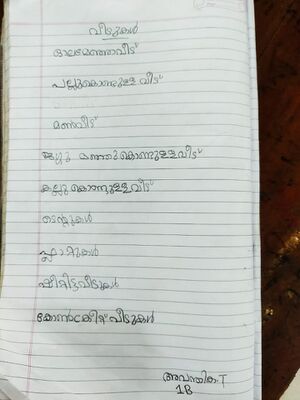 വീടുകൾ
ഓലമേഞ്ഞവീട്
പല്ലുകൊണ്ടുള്ള വീട്
മൺവീട്
മഞ്ഞുകൊണ്ടുള്ളവീട്
കല്ലുകൊണ്ടുള്ളവീട്
ടെന്റുകൾ
ഫ്ലാറ്റുകൾ
ഷീറ്റിട്ടവീടുകൾ
കോൺക്രീറ്റ് വീടുകൾ
അവന്തിക.T
1B